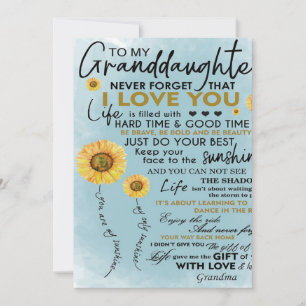 TO MY
Granddaughte
NEVER FORGET THAT
I LOVE YOU
Life is filled with
HARD TIME & GOOD TIME
BE BRAVE, BE BOLD AND BE BEAUTY
JUST DO YOUR BEST
Keep your
face to the sunshin
AND YOU CAN NOT SEE
THE SHADO
Life isn't about waiting
the storm to
IT'S ABOUT LEARNING TO
DANCE IN THE R
Enjoy the ride
And never forget
YOUR WAY BACK HOME
I DIDN'T GIVE YOU The gift of
Life gave me the GIFT OF
WITH LOVE &
Grandma
you are my sunshine
my only sunshine